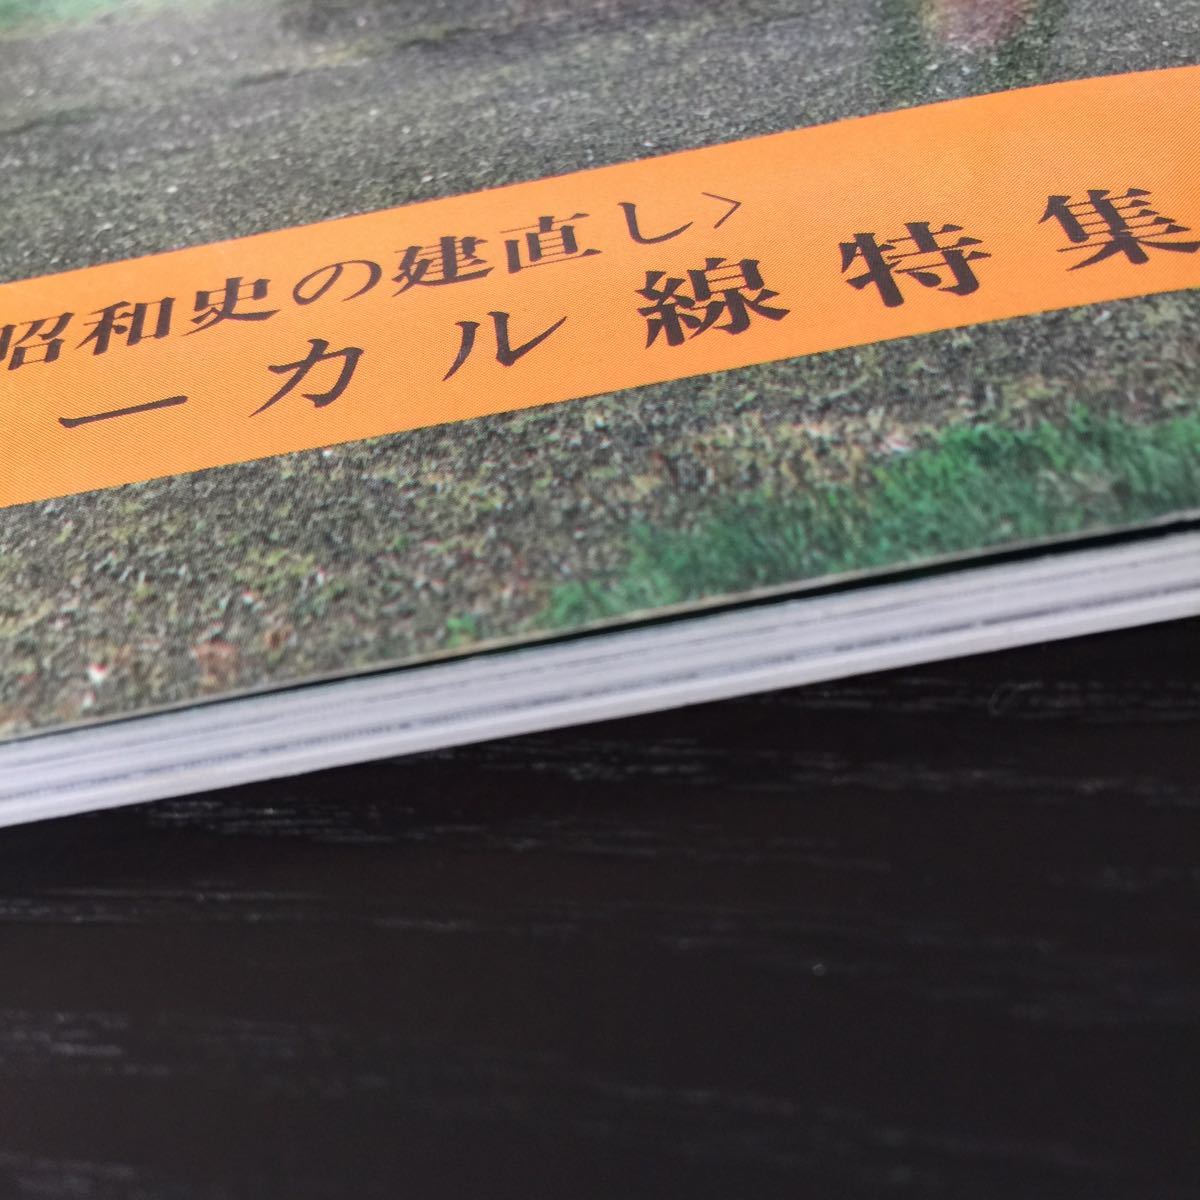 昭和史の建直し〉
ーカル線特集